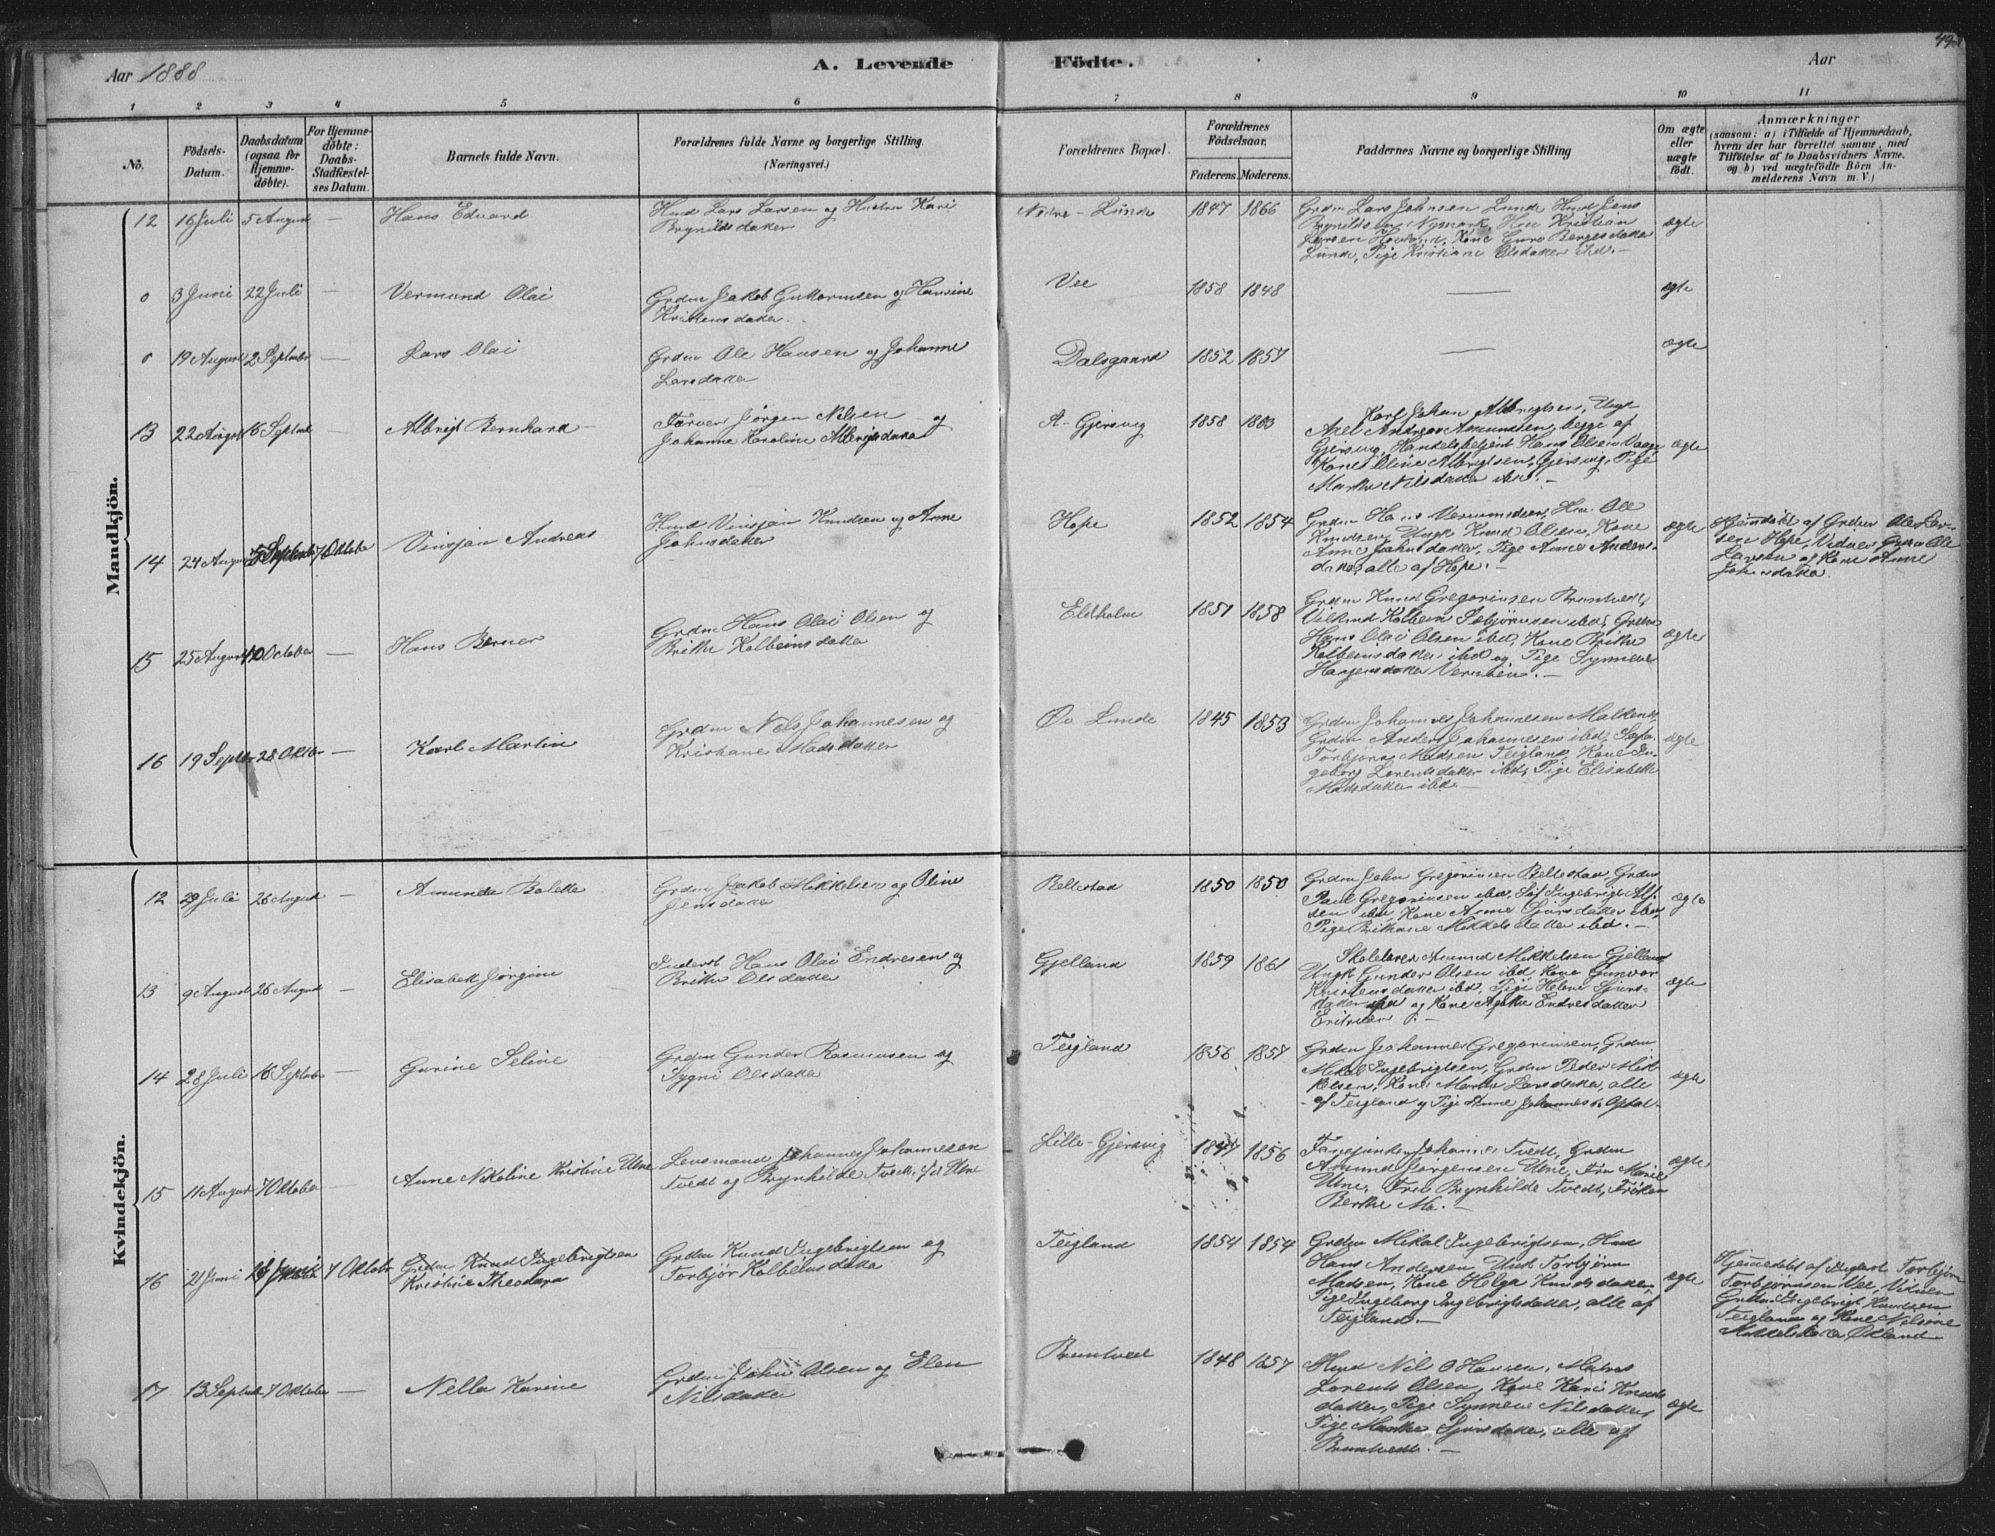 Aar 1888
A. Levende
Födte.
Aar
1 2 3 4 5 6 7 8 9 10 11
Nō.
Födsels-
Datum.
Daabsdatum
(ogsaa for
Hjemme-
döbte).
For Hjemme-
döbte:
Daabs-
Stadfæstel-
ses Datum.
Barnets fulde Navn.
Forældrenes fulde Navne og borgerlige Stilling.
(Næringsvei.)
Forældrenes Bopæl.
Forældrenes
Födselsaar.
Faderens.
Moderens.
Faddernes Navne og borgerlige Stilling
Om ægte
eller
uægte
födt.
Anmærkninger
(saasom: a) i Tilfælde af Hjemmedaab,
hvem der har forrettet samme, med
Tilföielse af to Daabsvidners Navne,
og b) ved uægtefödte Börn An-
melderens Navn m. V.)
Mandkjön.
12 16 Juli 5 August — Hans Edvard
Hmd Lars Larsen og Hustru Kari
Brynildsdatter
Nedre-Lunde 1847 1866
Grdm Lars Johnsen Lunde, Hmd Jens
Brynildsen Nymark, Hmd Kristian
Larsen, Kone Guro Børgesdatter
Lunde, Pige Kristiane Olsdatter ibd. —
ægte
0 3 Juni 22 Juli — Vermund Olai
Grdm Jakob Guttormsen og Hansine
Kristensdatter
Vee 1858 1848 — ægte
0 19 August 2 September — Lars Olai
Grdm Ole Hansen og Johanne
Larsdatter
Dalsgaard 1852 1857 — ægte
13 22 August 16 Septbr Albrigt Bernhard —
Farver Jörgen Nilsen og
Johanne Karoline Albrigtsdatter
A-Gjersvig 1858 1863
Karl Johan Albrigtsen, Ungk
Axel Andreas Amundsen, begge af
Gjersvig, Handelsbetjent Hans Olsen Vaage,
Kone Oline Albrigtsen, Gjersvig, Pige
Marthe Nilsdatter ibd. —
ægte
14 24 August 5 September 7 Oktober Vinsjan Andreas
Hmd Vinsjan Knudsen og Anne
Johnsdatter
Hope 1852 1854
Grdm Hans Vermundsen, Hm Ole
Knudsen, Ungk Knud Olsen, Kone
Anne Johnsdatter, Pige Anne Anders-
datter, alle af Hope. —
ægte
Hjemdøbt af Grdm Ole Lar-
sen Hope, Vidner Grdm Ole
Larsen og Kone Anne
Johnsdatter.
15 25 August 10 October — Hans Berner
Grdm Hans Olai Olsen og
Brithe Kolbeinsdatter
Eldholm 1851 1858
Grdm Knud Gregoriusen Bruntvedt,
Kolbein Torbjörnsen ibd, Grdm
Hans Olai Olsen ibd, Kone Brithe
Kolbeinsdatter ibd og Pige Synneve
ægte
16 19 Septbr 28 Oktbr — Karl Martin
Grdm Nils Johannesen og
Kristiane Madsdatter
Øv Lunde 1845 1853
Grdm Johannes Johannesen Malkenes,
Grdm Anders Johannesen ibd,
Torbjörn Madsen Teigland, Kone In-
geborg Lorentsdatter ibd, Pige Elisabeth
Madsdatter ibd —
ægte
Kvindekjön.
12 29 Juli 26 August — Amunda Bolette
Grdm Jakob Mikkelsen og Oline
Jensdatter
Beltestad 1850 1850
Grdm John Gregoriusen Beltestad, Grdm
Paul Gregoriusen ibd,
Kone Anne Sjursdatter ibd,
Pige Brithane Mikkelsdatter ibd. —
ægte
13 9 August 26 August — Elisabeth Jörgine
Inderst Hans Olai Endresen og
Brithe Olsdatter
Gjelland 1859 1861
Skolelærer Amund Mikkelsen Gjelland
Ungk Gunder Olsen ibd, Kone Gunvor
Kristensdatter ibd, Pige Helene Sjurs-
datter ibd og Kone Agathe Endresdatter
ægte
14 28 Juli 16 Septbr — Gurine Seline
Grdm Gunder Rasmussen og
Sygni Olsdatter
Teigland 1856 1857
Grdm Johannes Gregoriusen, Grdm
Mikal Ingebrigtsen, Grdm Peder Mik-
kelsen, Kone Marthe Larsdatter, alle
af Teigland og Pige Anne Johannesdr Opsal —
ægte
15 11 August 7 Oktober Anne Nikoline Kristine Utne
Lensmand Johannes Johannesen
Tvedt og Brynhilde Tvedt, föd Utne
Lille-Gjersvig 1847 1856
Johannes Tvedt, Grdm
Amund Jörgensen Utne, Fru Marie
Utne, Fru Brynhilde Tvedt, Fröken
Berthe Mo. —
ægte
16 21 Juni 7 Oktober
Grdm Knud Ingebrigtsen
Kristine Theodora
Grdm Knud Ingebrigtsen og
Torbjör Kolbeinsdatter
Teigland 1854 1854
Grdm Mikal Ingebrigtsen, Hmd
Hans Andersen, Torbjörn
Madsen, Kone Helga Knudsdatter,
Pige Ingeborg Ingebrigtsdatter, alle af
Teigland. —
ægte
Hjemmedöbt af Torbjörn
Torbjörnsen Vee, Vidner
Grdm Ingebrigt Knudsen
Teigland og Kone Nilsine
Mikkelsdatter Økland
17 13 Septbr 7 Oktober — Nella Karine
Grdm John Olsen og Elen
Nilsdatter
Bruntvedt 1848 1857
Hmd Nils O Hansen, Matros
Lorents Olsen, Kone Kari Knuds-
datter, Pige Synneve Nilsdatter,
Pige Marthe Sjursdatter, alle af
Bruntvedt. —
ægte